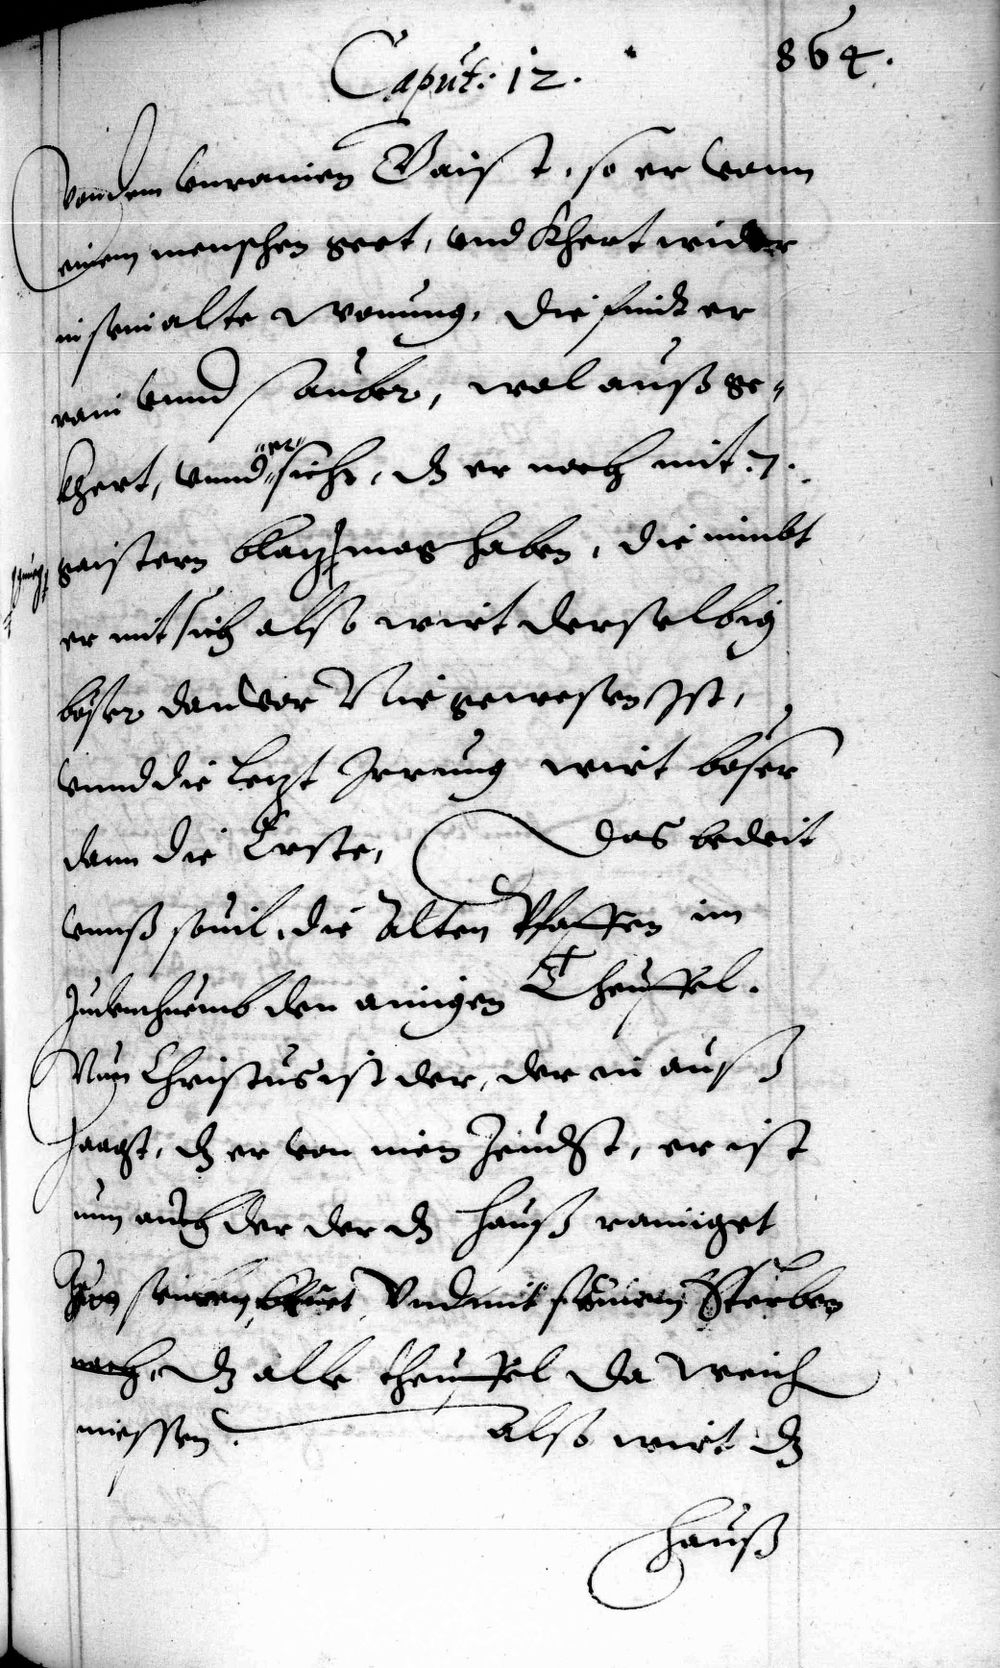 Caput: 12. 864.
Von dem vnrainen Gaist, so er vonn
einem menschen geet, vnd khert wider
in sein alte wonung, die findt er
rain vnnd sauber, wol auß ge-
khert, vnnd er sicht, dz er noch mit .7.
geistern blaz mag haben, die nimbt
er mit sich also wirt derselbig
böser dan vor Nie gewesen Ist,
vnnd die Lezt Irrung wirt böser
dann die Erste, Das bedeit
vnnß souil, die Alten Pfaffen im
Judenthumb den ainigen Theuffel.
Nun Christus ist der, der in auß
Jaagt, dz er von inen Zeüdst, er ist
nun auch der der dz hauß rainiget
seinem bluet Vnd mit seinem Sterben
dz alle theuffel da weich
miessen. Also wirt dz
hauß